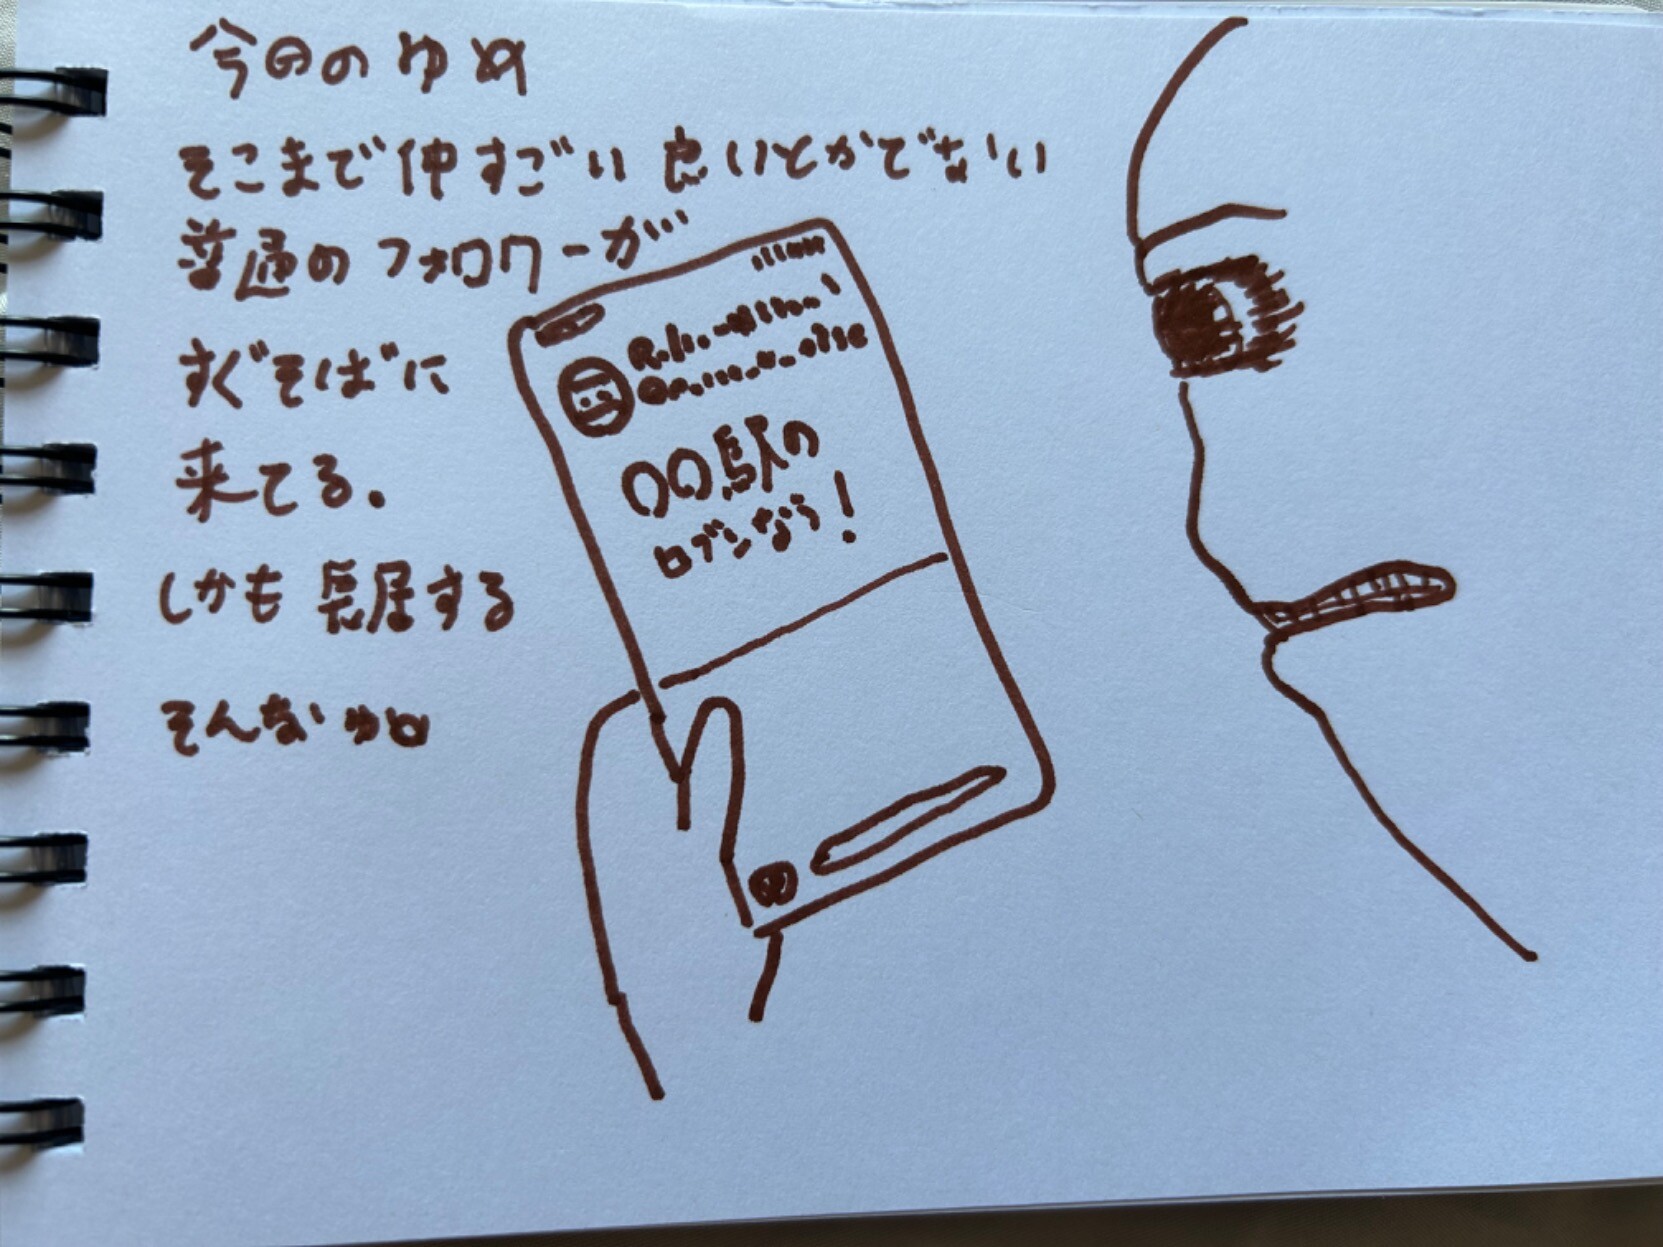 今日のゆめ
そこまで仲すごい良いとかでない
普通のフォロワーが
すぐそばに
来てる。
しかも長居する
そんなゆめ
〇〇駅の
ロブンなう!